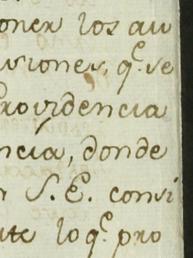 oner los au
usiones, q.e se
Providencia
ncia, donde
r S. E. consi
ute lo q.e pro